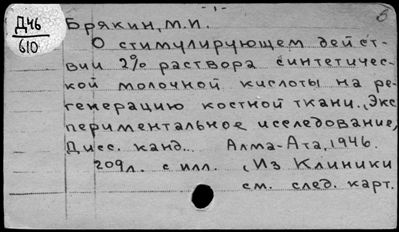 - 1 -
Д46
610
Брякин, М.И.
О стимулирующем дейст-
вии 2% раствора синтетичес-
кой молочной кислоты на ре-
генерацию костной ткани. Экс
периментальное исследование,
Дисс. канд... Алма-Ата, 1946.
209л. с илл. (Из Клиники
см. след. карт.